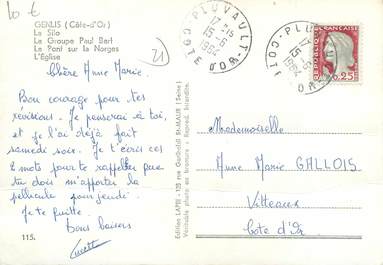 10 €
GENLIS (Côte-d'Or)
Le Silo
Le Groupe Paul Bert
Le Pont sur la Norges
L'Église
21
Chère Anne Marie.
Bon courage pour tes
révisions. Je penserai à toi,
et je l'ai déjà fait
samedi soir. Je t'écris ces
2 mots pour te rappeler que
tu dois m'apporter la
pellicule pour jeudi.
Je te quitte.
Bons baisers
115.
Edition LAPIE - 123 rue Garibaldi St-MAUR (Seine)
Véritable photo au bromure - Reprod. Interdite.
PLUVAULT
17 H 15
15-6
1964
COTE D'OR
PLUVAULT
17 H 15
15-6
1964
COTE D'OR
REPUBLIQUE FRANÇAISE
0,25
Mademoiselle
Anne Marie GALLOIS
Vitteaux
Côte d'Or